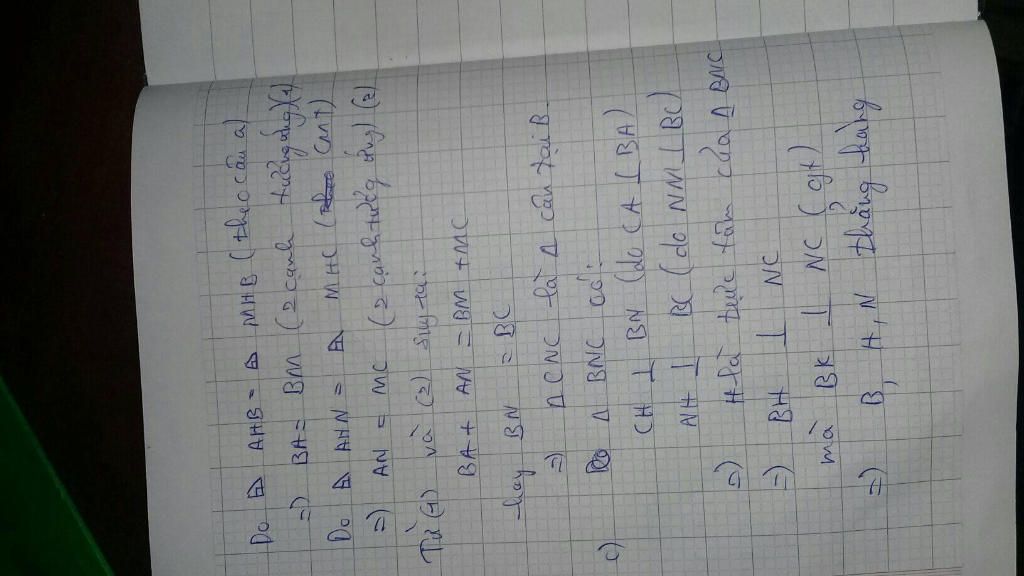 Do Δ AHB = Δ MHB (theo câu a)
=) BA = BM (2 cạnh tương ứng) (1)
Do Δ AHN = Δ MHC (CMT)
=) AN = MC (2 cạnh tương ứng) (2)
Từ (1) và (2) suy ra:
BA + AN = BM + MC
hay BN = BC
=) Δ CNC là Δ cân tại B
c) Δ BNC có:
CH ⊥ BN (do CA ⊥ BA)
NH ⊥ BC (do NM ⊥ BC)
=) H là trực tâm của Δ BNC
=) BH ⊥ NC
mà BK ⊥ NC (gt)
=) B, H, N thẳng hàng